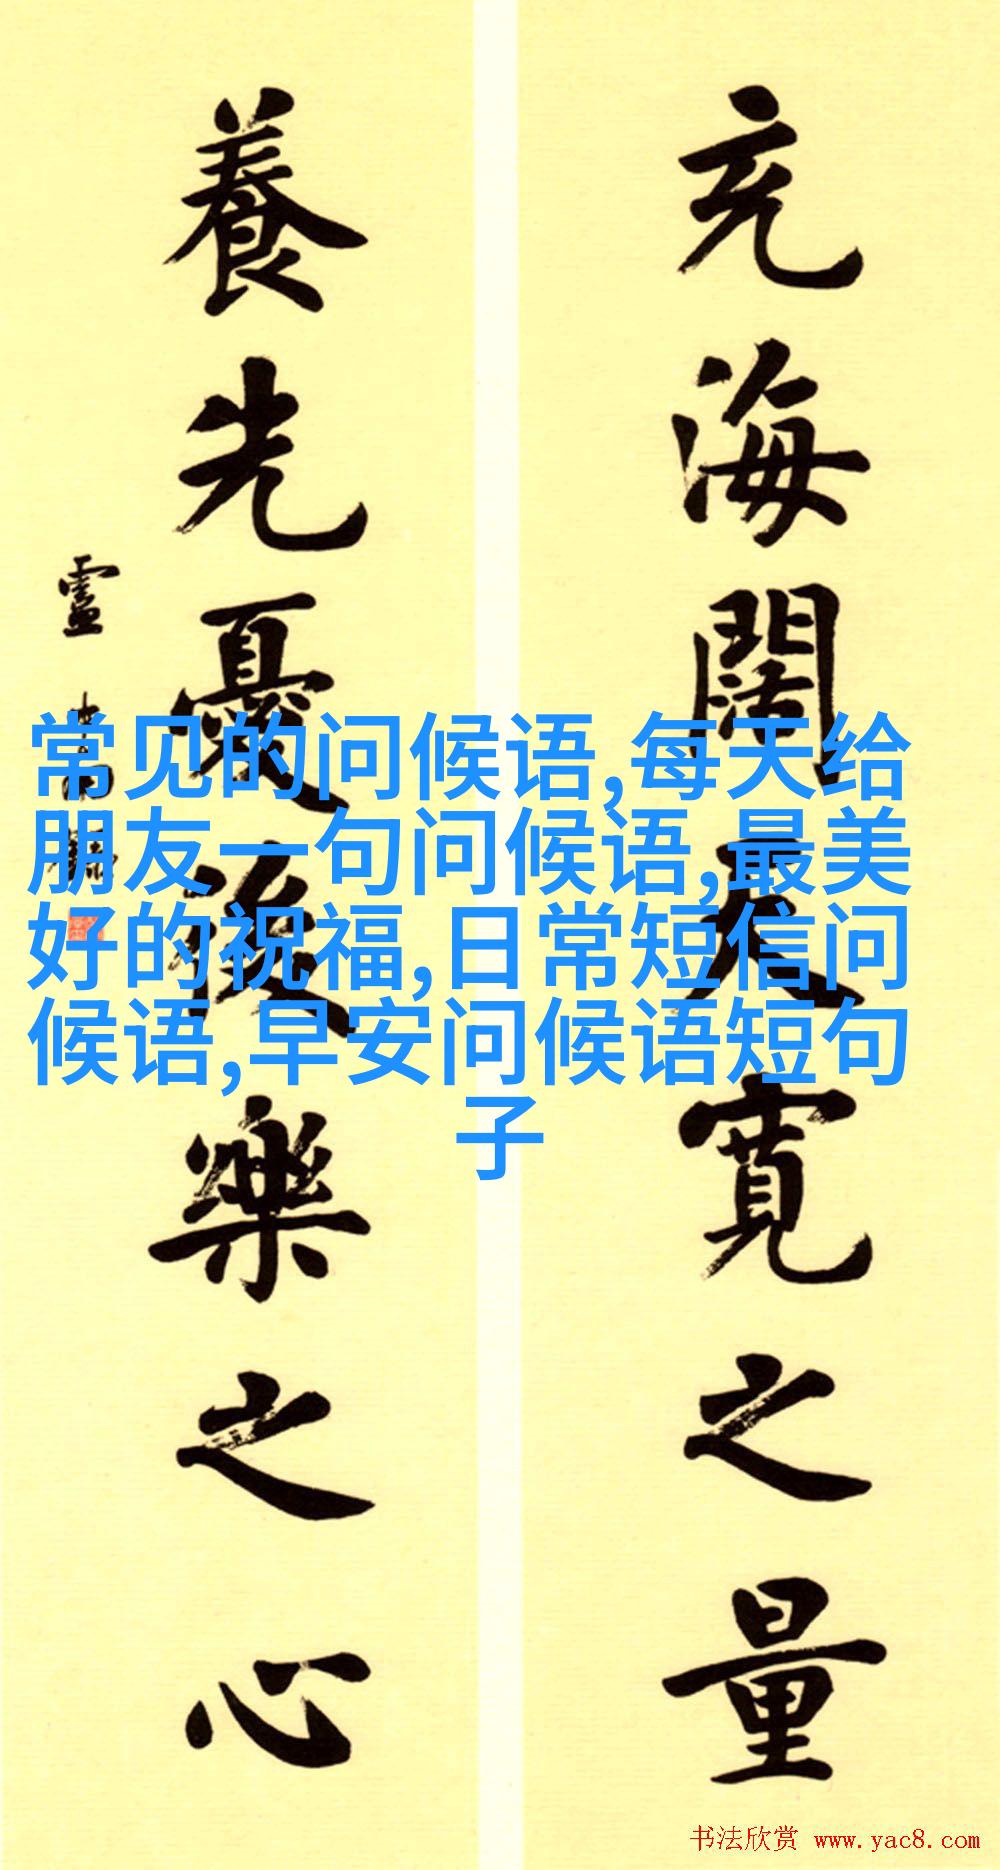 充海闊天寬之量
養先憂後樂之心
常见的问候语,每天给
朋友一句问候语,最美
好的祝福,日常短信问
候语,早安问候语短句
子
书法欣赏 www.yac8.com